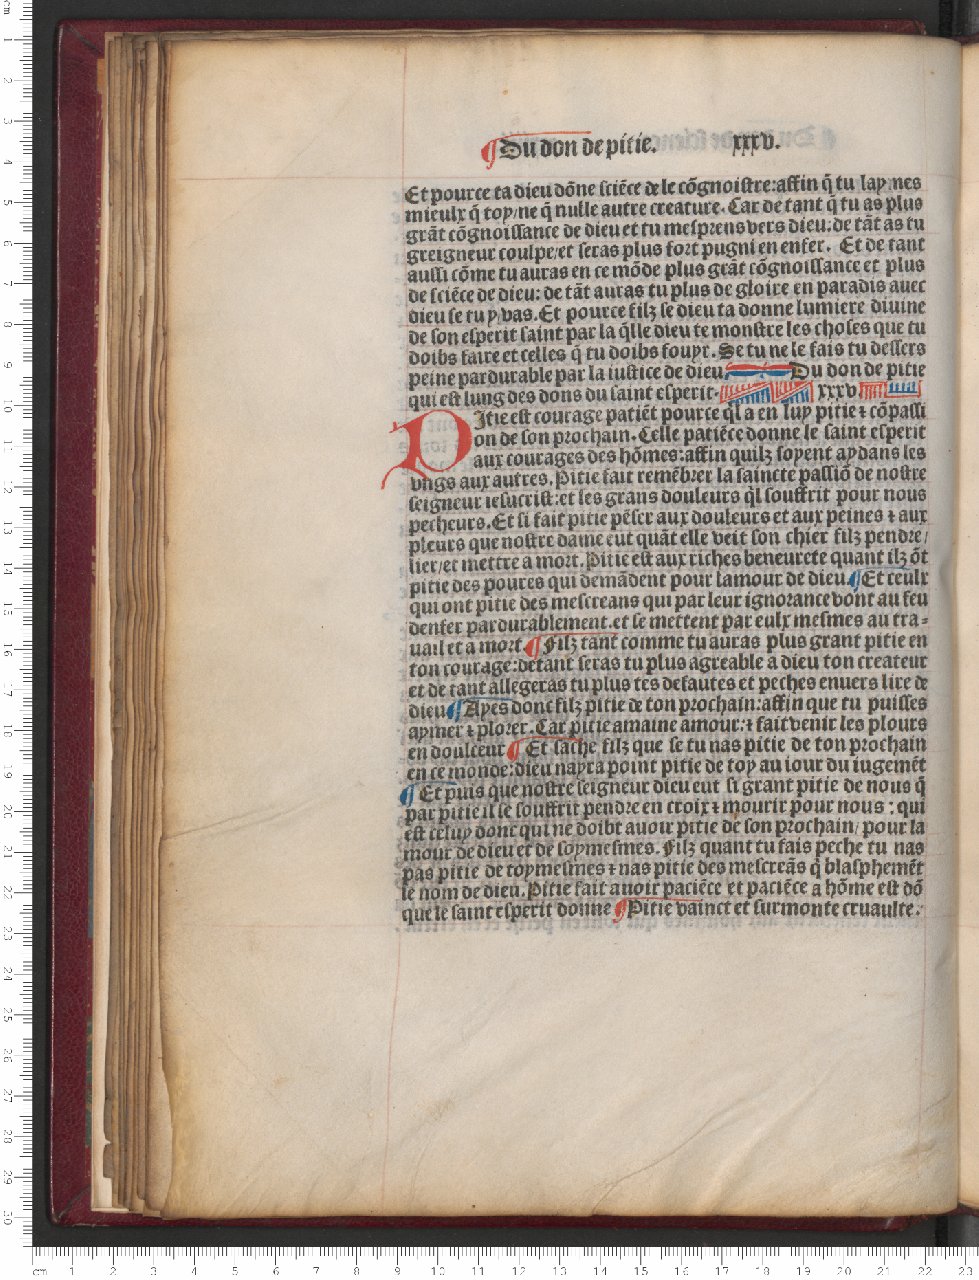 ¶Du don de pitie. xxxv.
Et pource ta dieu dōne sciēce de le cōgnoistre:affin q̄ tu laymes
mieulx q̄ toy/ne q̄ nulle autre creature. Car de tant q̄ tu as plus
grāt cōgnoissance de dieu et tu mesprens vers dieu: de tāt as tu
greigneur coulpe/et seras plus fort pugni en enfer. Et de tant
aussi cōme tu auras en ce mōde plus grāt cōgnoissance et plus
de sciēce de dieu: de tāt auras tu plus de gloire en paradis auec
dieu se tu y vas. Et pource filz se dieu ta donne lumiere diuine
de son esperit saint par la q̄lle dieu te monstre les choses que tu
doibs faire et celles q̄ tu doibs fouyr. Se tu ne le fais tu dessers
peine pardurable par la iustice de dieu. Du don de pitie
qui est lung des dons du saint esperit. xxxv
PItie est courage patiēt pource q̄l a en luy pitie ⁊ cōpassi
on de son prochain. Celle patiēce donne le saint esperit
aux courages des hōmes:affin quilz soyent aydans les
vngs aux autres. Pitie fait remēbrer la saincte passiō de nostre
seigneur iesucrist:et les grans douleurs q̄l souffrit pour nous
pecheurs. Et si fait pitie pēser aux douleurs et aux peines ⁊ aux
pleurs que nostre dame eut quāt elle veit son chier filz pendre/
lier/et mettre a mort. Pitie est aux riches beneurete quant ilz ōt
pitie des poures qui demādent pour lamour de dieu ¶Et ceulx
qui ont pitie des mescreans qui par leur ignorance vont au feu
denfer pardurablement.et se mettent par eulx mesmes au tra-
uail et a mort ¶Filz tant comme tu auras plus grant pitie en
ton courage:detant seras tu plus agreable a dieu ton createur
et de tant allegeras tu plus tes defautes et peches enuers lire de
dieu ¶Ayes dont filz pitie de ton prochain:affin que tu puisses
aymer ⁊ plorer. Car pitie amaine amour:⁊ fait venir les plours
en doulceur ¶Et sache filz que se tu nas pitie de ton prochain
en ce monde:dieu nayra point pitie de toy au iour du iugemēt
¶Et puis que nostre seigneur dieu eut si grant pitie de nous q̄
par pitie il se souffrit pendre en croix ⁊ mourir pour nous : qui
est celuy dont qui ne doibt auoir pitie de son prochain/pour la
mour de dieu et de soymesmes. Filz quant tu fais peche tu nas
pas pitie de toymesmes ⁊ nas pitie des mescreās q̄ blasphemēt
le nom de dieu. Pitie fait auoir paciēce et paciēce a hōme est dō
que le saint esperit donne ¶Pitie vainct et surmonte cruaulte.